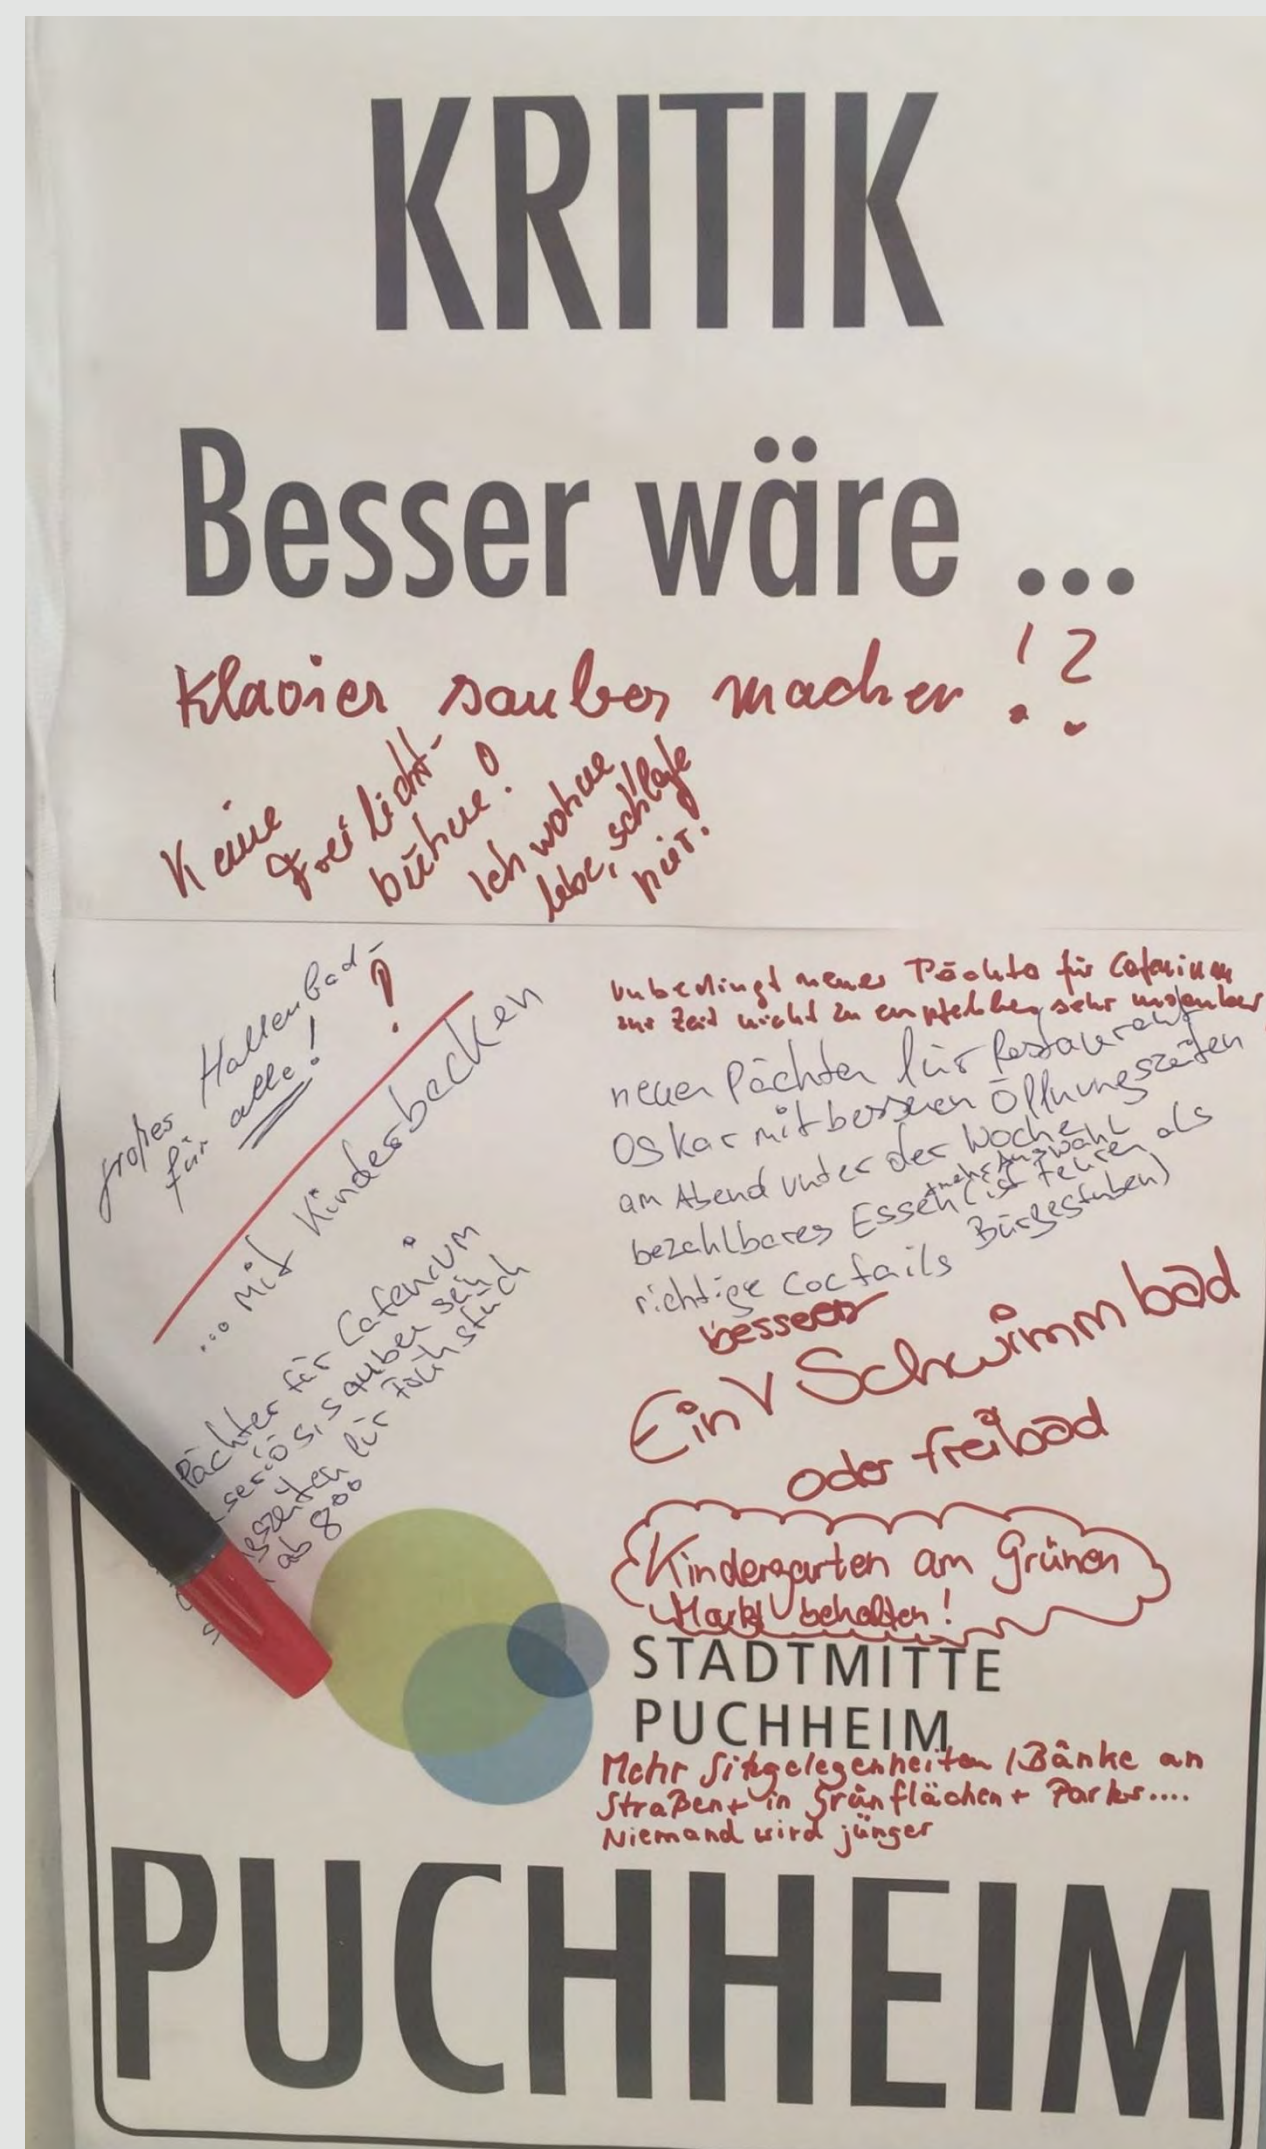 KRITIK
Besser wäre ...
Klavier sauber machen !?
Keine
Freilicht-
bühne!
Ich wohne,
lebe, schlafe
hier.
großes Hallenbad-
für alle! !
... mit Kinderbecken
Pächter für Cafenium
seriös, sauber sein
für Frühstück
ab 800
unbedingt neuer Pächter für Cafenium
zur Zeit nicht zu empfehlen, sehr
neuen Pächter für Restaurant
Oskar mit besseren Öffnungszeiten
am Abend unter der Woche
+ mehr Auswahl
bezahlbares Essen (ist teurer als
Bürgerstuben)
richtige Coctails
besseres
Ein V Schwimmbad
oder freibad
Kindergarten am Grünen
Markt behalten!
STADTMITTE
PUCHHEIM
Mehr Sitzgelegenheiten / Bänke an
Straßen + in Grünflächen + Parks....
Niemand wird jünger
PUCHHEIM